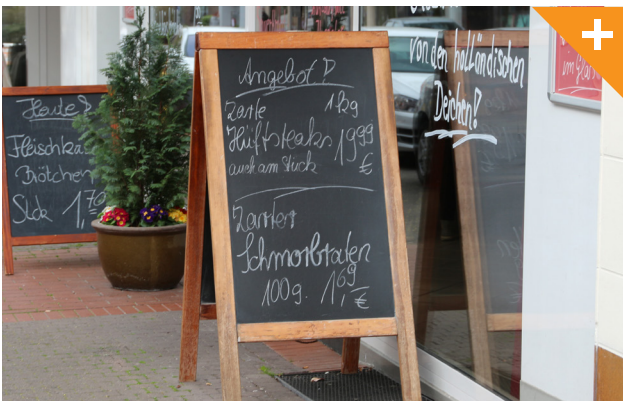 Heute
Fleischkä
Brötchen
Stck 1,70
Angebot!
Zarte 1kg
Hüftsteaks 19,99
auch am Stück €
Zarter
Schmorbraten
100g. 1,69 €
von den holländischen
Deichen!